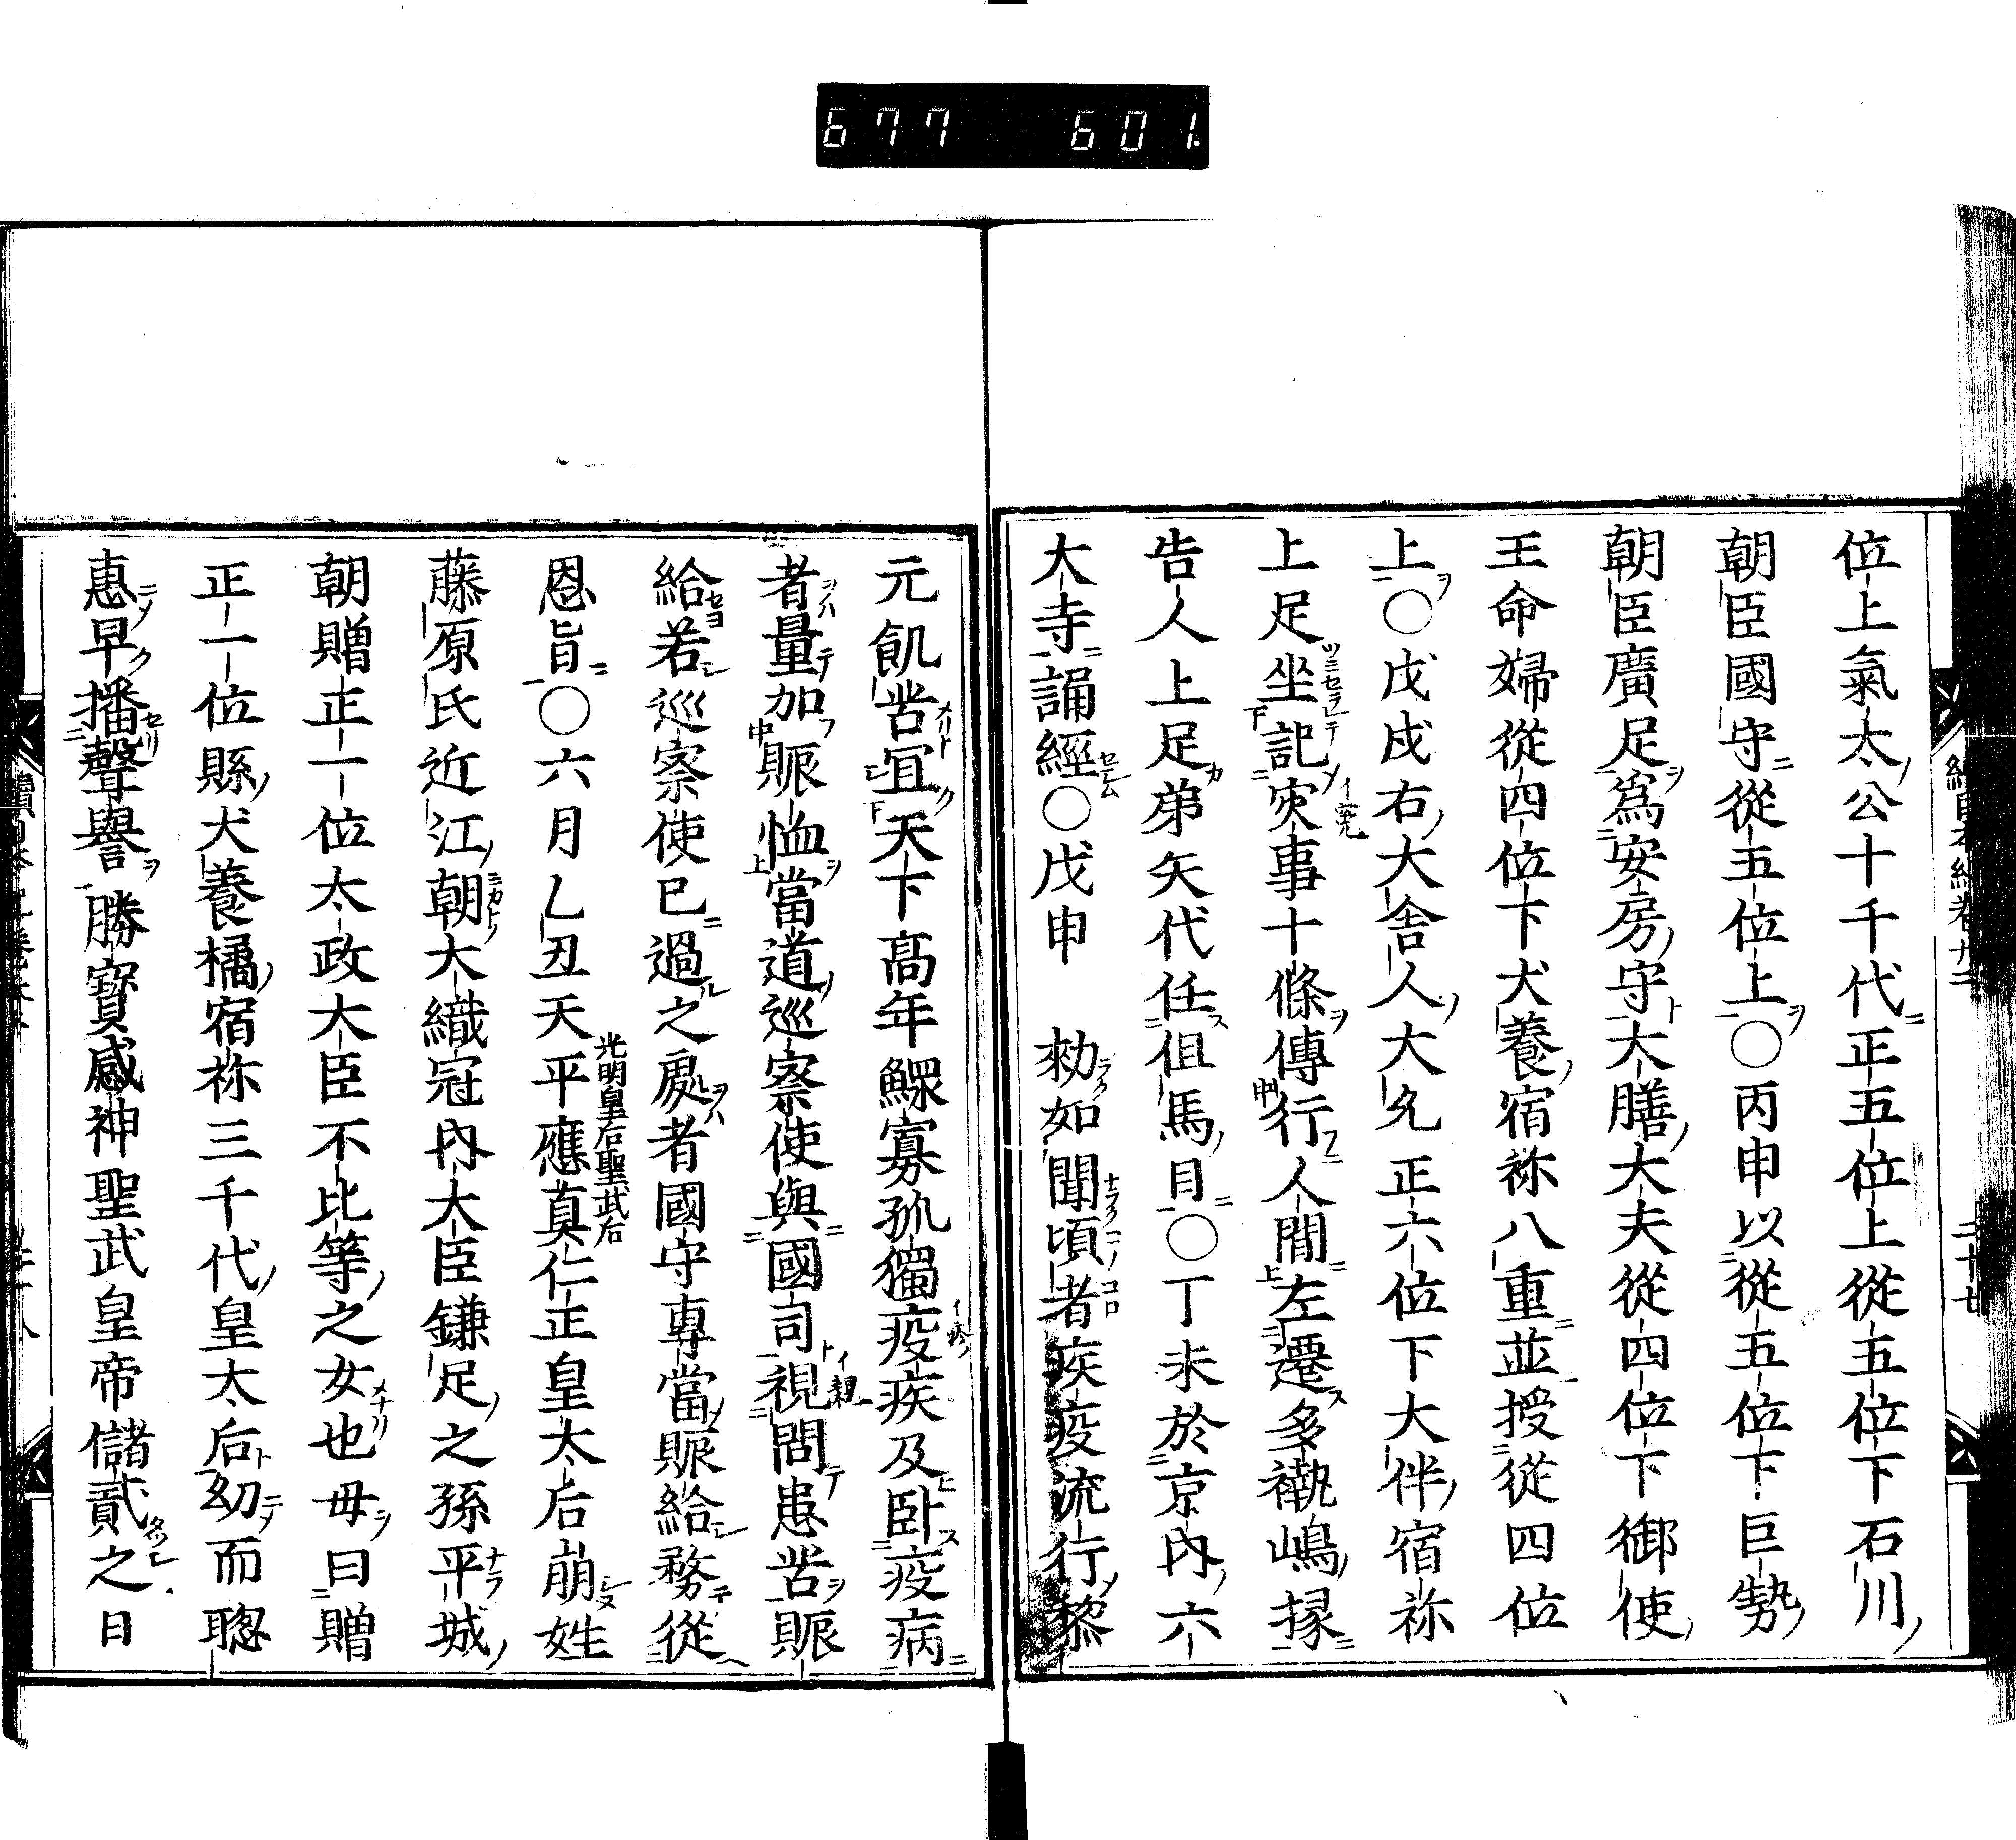 677 601.
位上氣太公十千代正五位上從五位下石川
朝臣國守從五位上〇丙申以從五位下巨勢
朝臣廣足爲安房守大膳大夫從四位下御使
王命婦從四位下犬養宿祢八重並授從四位
上〇戊戌右大舍人大允正六位下大伴宿祢
上足坐記灾事十條傳行人間左遷多褹嶋掾
告人上足弟矢代任但馬目〇丁未於京內六
大寺誦經〇戊申 勑如聞頃者疾疫流行黎
元飢苦宜天下高年鰥寡孤獨疫疾及臥疫病
者量加賑恤當道巡察使與國司視問患苦賑
給若巡察使已過之處者國守專當賑給務從
恩旨〇六月乙丑天平應真仁正皇太后崩姓
光明皇后聖武后
藤原氏近江朝大織冠內大臣鎌足之孫平城
朝贈正一位太政大臣不比等之女也母曰贈
正一位縣犬養橘宿祢三千代皇太后幼而聰
惠早播聲譽勝寶感神聖武皇帝儲貳之日